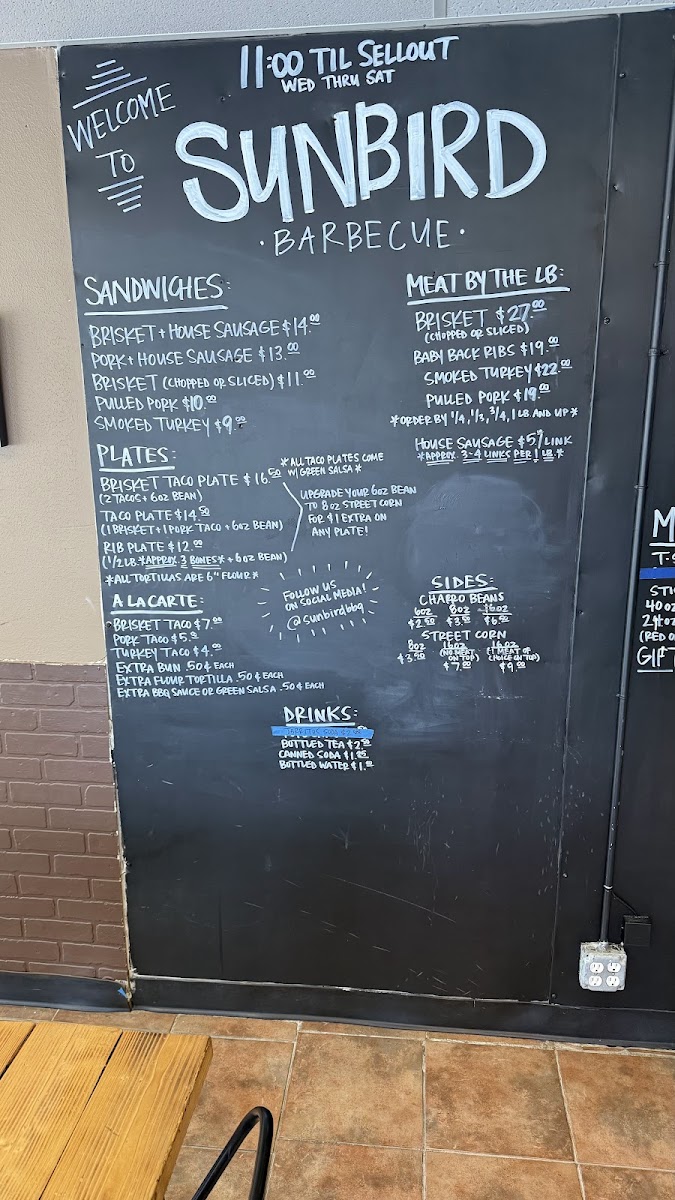 11:00 TIL SELLOUT
WED THRU SAT
WELCOME
TO
SUNBIRD
·BARBECUE·
SANDWICHES:
BRISKET + HOUSE SAUSAGE $14.00
PORK + HOUSE SAUSAGE $13.00
BRISKET (CHOPPED OR SLICED) $11.00
PULLED PORK $10.00
SMOKED TURKEY $9.00
MEAT BY THE LB:
BRISKET $27.00
(CHOPPED OR SLICED)
BABY BACK RIBS $19.00
SMOKED TURKEY $22.00
PULLED PORK $19.00
*ORDER BY 1/4, 1/3, 3/4, 1 LB AND UP*
HOUSE SAUSAGE $5/LINK
*APPROX. 3-4 LINKS PER 1 LB.*
PLATES:
BRISKET TACO PLATE $16.50
(2 TACOS + 6OZ BEAN)
TACO PLATE $14.50
(1 BRISKET + 1 PORK TACO + 6OZ BEAN)
RIB PLATE $12.00
(1/2 LB. *APPROX. 3 BONES* + 6OZ BEAN)
*ALL TORTILLAS ARE 6" FLOUR*
*ALL TACO PLATES COME
W/ GREEN SALSA*
UPGRADE YOUR 6OZ BEAN
TO 8OZ STREET CORN
FOR $1 EXTRA ON
ANY PLATE!
A LA CARTE:
BRISKET TACO $7.00
PORK TACO $5.
TURKEY TACO $4.00
EXTRA BUN .50¢ EACH
EXTRA FLOUR TORTILLA .50¢ EACH
EXTRA BBQ SAUCE OR GREEN SALSA .50¢ EACH
FOLLOW US
ON SOCIAL MEDIA!
@sunbirdbbq
SIDES:
CHARRO BEANS
6OZ 8OZ 16OZ
$2.50 $3. $6.
STREET CORN
8OZ 16OZ 16OZ
(NO MEAT ON TOP) (+ MEAT OF CHOICE ON TOP)
$3.50 $7.00 $9.00
DRINKS:
BOTTLED TEA $2.
CANNED SODA $1.
BOTTLED WATER $1.
M
T-S
STI
40 OZ
24 OZ
(RED O
GIFT